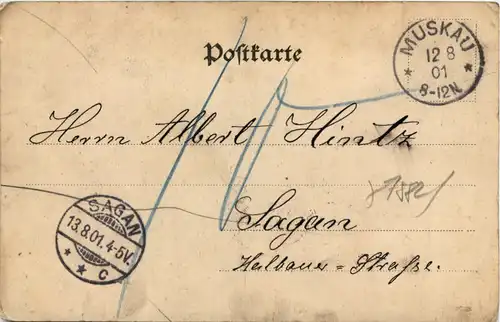 Postkarte
MUSKAU
12 8
01
8-12N.
10
Herrn Albert Hintz
Sagan
Halbauer=Strasse.
SAGAN
13.8.01.4-5V.
* * c